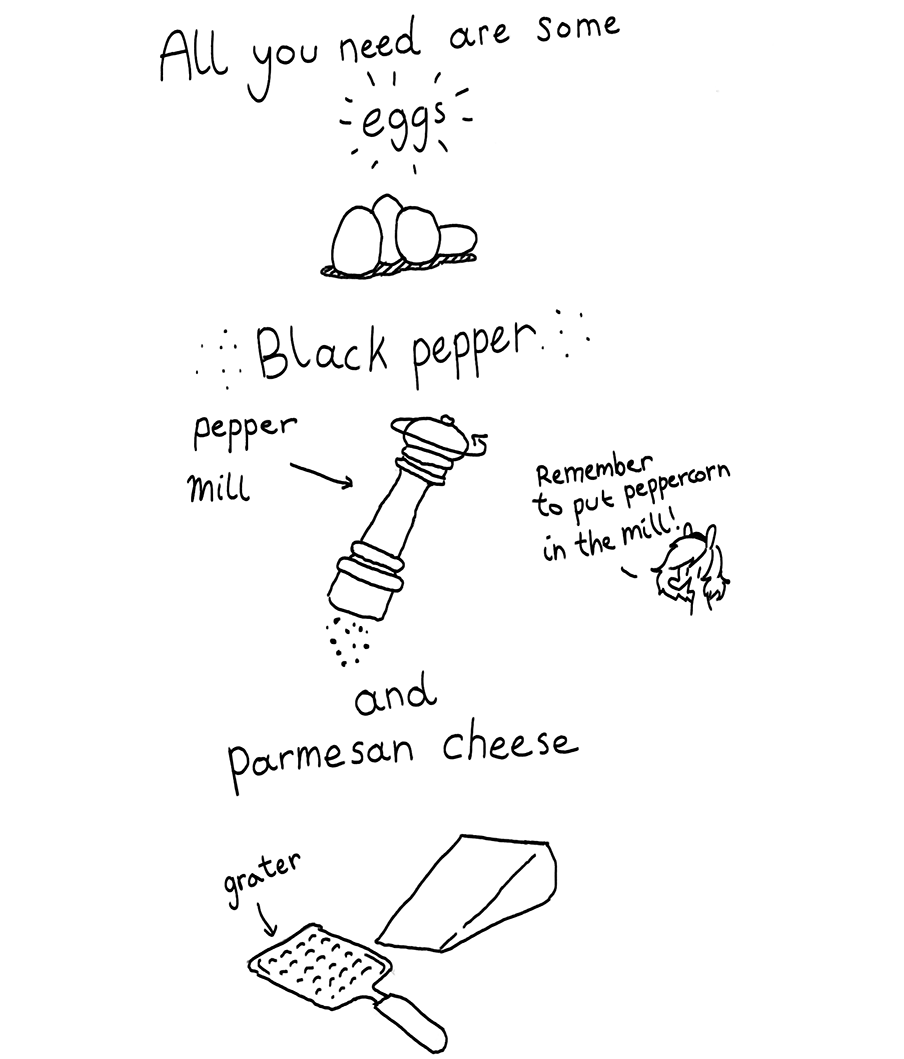 All you need are some
eggs
Black pepper
pepper
mill
Remember
to put peppercorn
in the mill!
and
parmesan cheese
grater